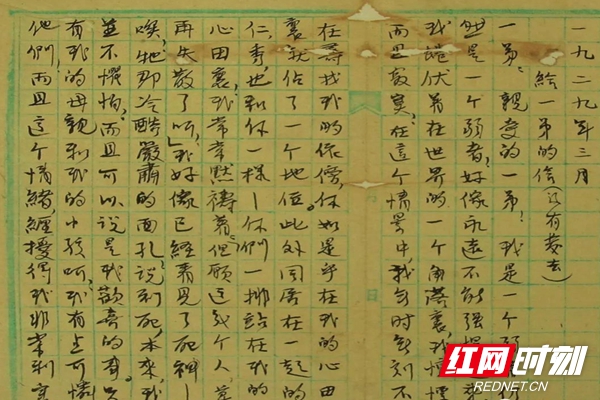 一九二九年三月
给一弟的信(没有发去)
一弟,亲爱的一弟!我是一个弱
然是一个弱者,好像永远不能强
我蜷伏着在世界的一个角落裏,我
而且
实,在这个情景中,我每时每刻不
在寻找我的依傍,你如是乎在我的心田
裏就佔了一个地位。此外同居在一起的
仁,秀,也和你一样——你们一排站在我的
心田裏,我常常默祷着:但愿这几个人,莫
再失散了呵!我好像已经看见了死神——
唉,牠那冷酷严肃的面孔,说到死,本来,我
並不惧怕,而且可以说是我欢喜的事。只
有我的母亲和我的小孩呵,我有点可怜
他们,而且这个情绪,缠扰得我非常利害
红网时刻
REDNET.CN